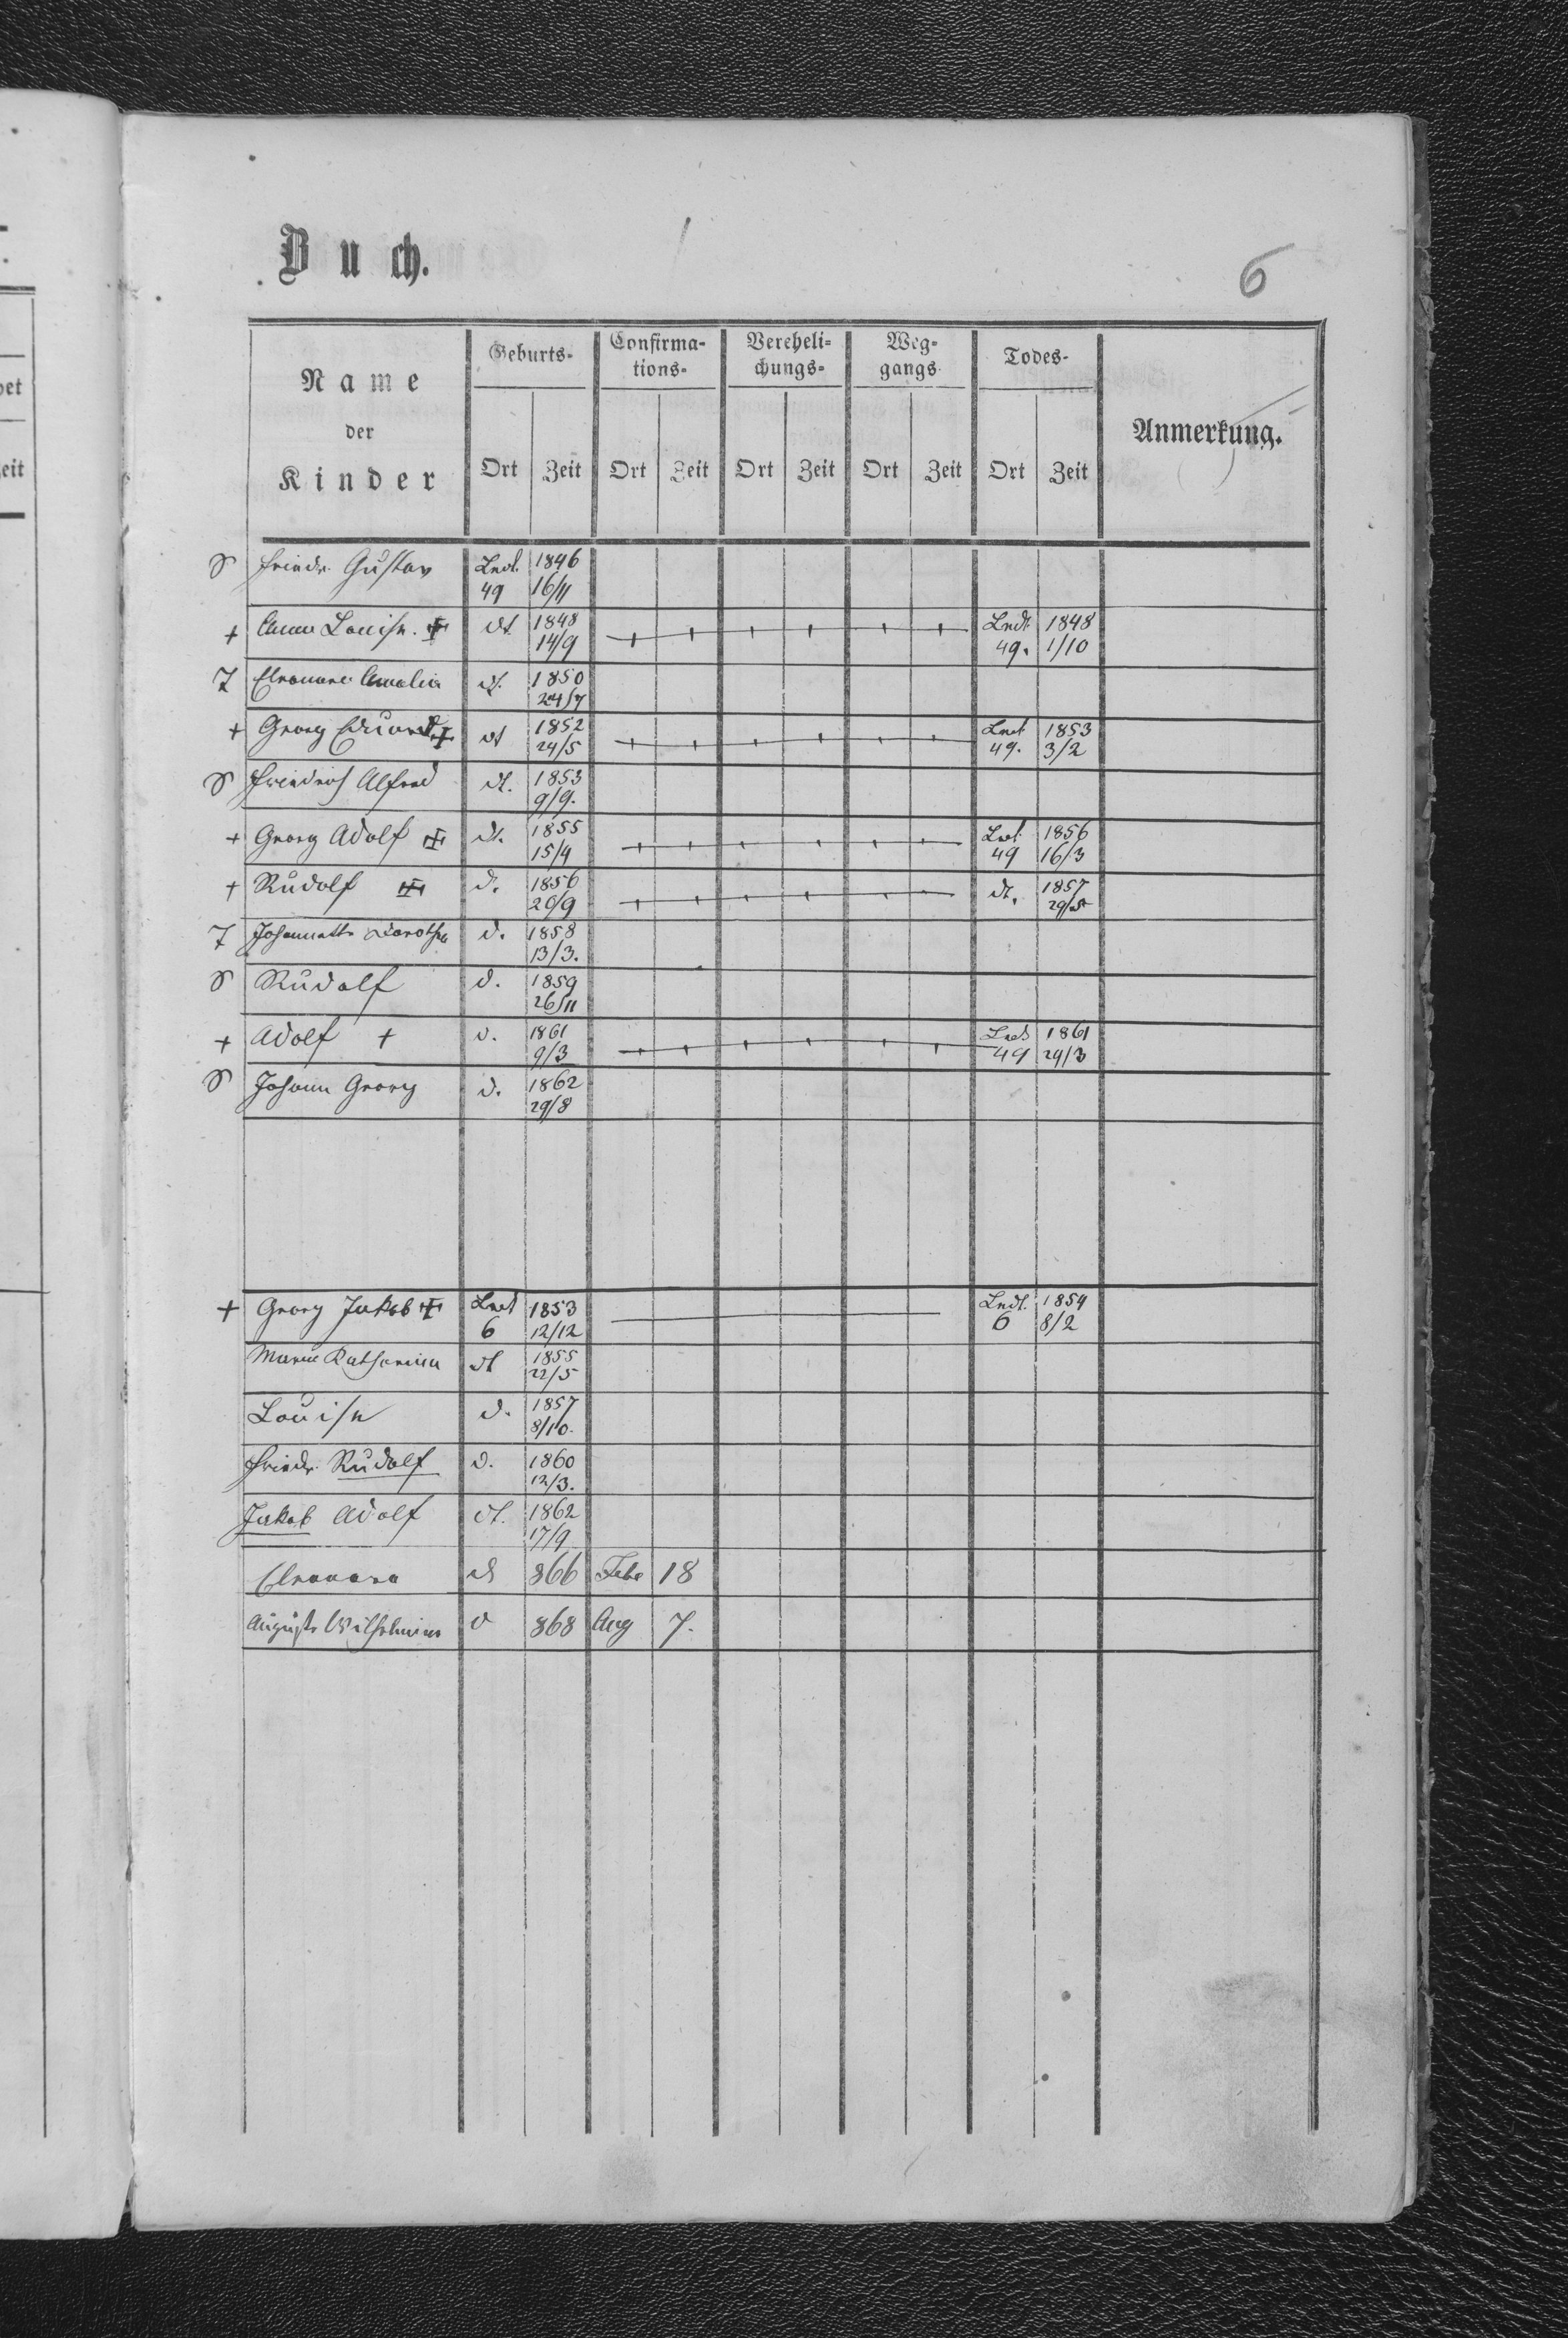 Buch.
6
Name
der
Kinder
Geburts-
Confirma-
tions-
Vereheli-
chungs-
Weg-
gangs
Todes-
Anmerkung.
Ort Zeit Ort Zeit Ort Zeit Ort Zeit Ort Zeit
et
eit
S Friedr. Gustav Lndt. 1846
49 16/11
+ Anna Louise. + dt. 1848 Lndt. 1848
14/9 49. 1/10
T Eleonore Amalia dt. 1850
24/7
+ Georg Eduard + dt 1852 Lndt 1853
24/5 49. 3/2
S Friedrich Alfred dt. 1853
9/9.
+ Georg Adolf + dt. 1855 Lndt. 1856
15/4 49 16/3
+ Rudolf + d. 1856 dt. 1857
20/9 29/5
T Johannette Dorothea d. 1858
13/3.
S Rudolf d. 1859
26/11
+ Adolf + d. 1861 Lndt 1861
9/3 49 24/3
S Johann Georg d. 1862
29/8
+ Georg Jakob + Lndt 1853 Lndt. 1854
6 12/12 6 8/2
Marie Katharina dt 1855
22/5
Louise d. 1857
8/10.
Friedr. Rudolf d. 1860
12/3.
Jakob Adolf dt. 1862
17/9
Eleonora dt 866 Febr 18
Auguste Wilhelmine d 868 Aug 7.